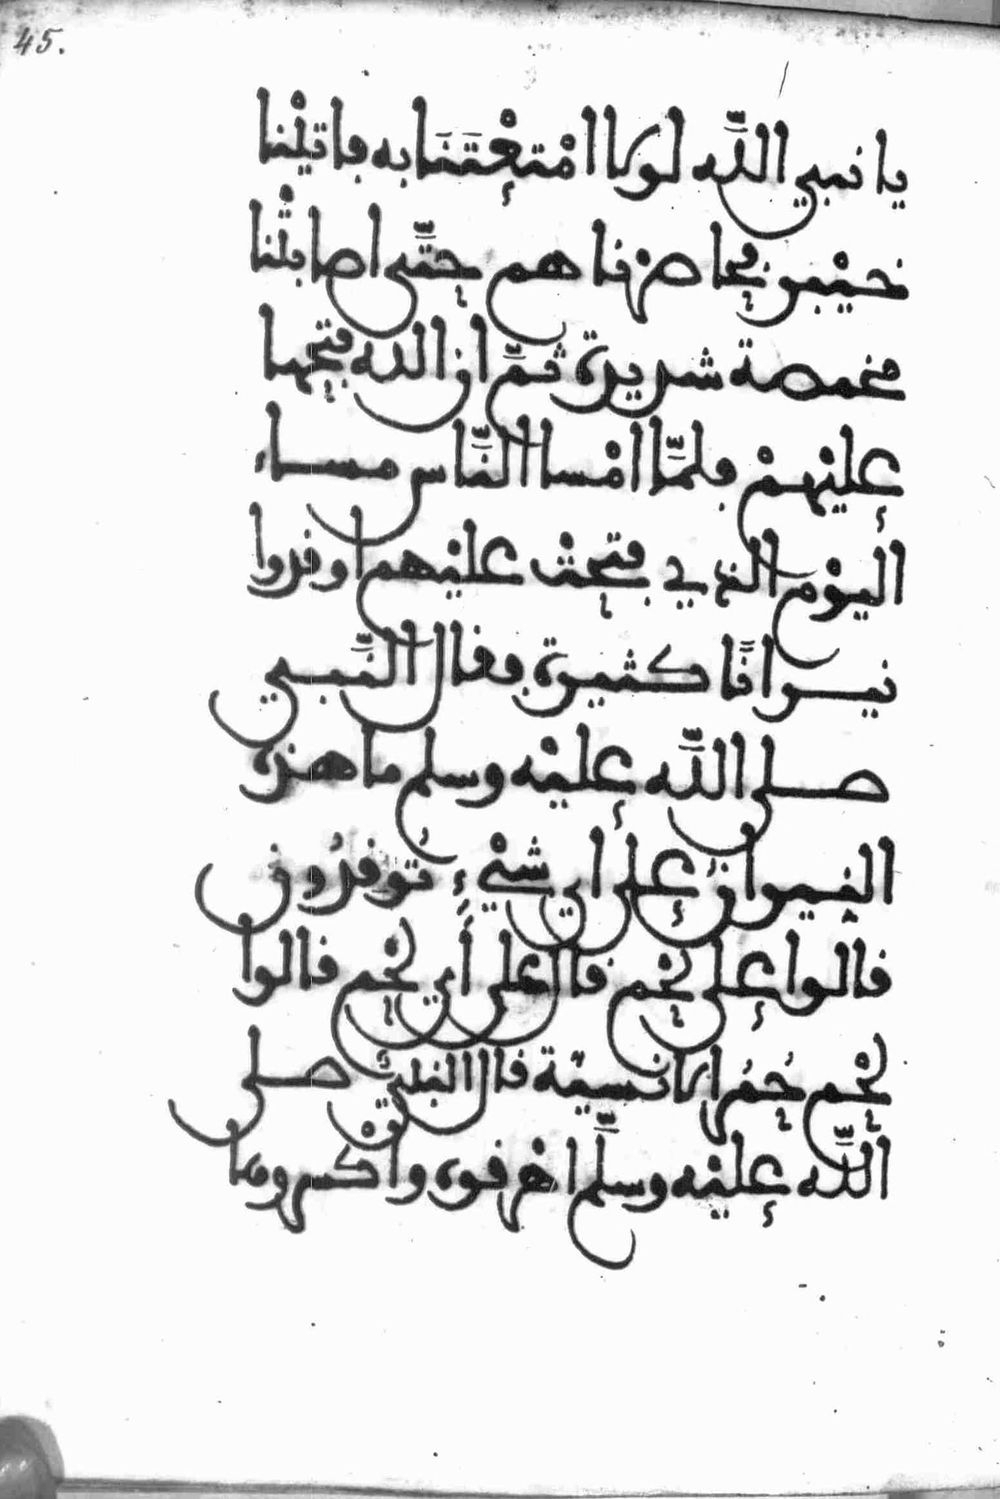 45.
يا نبي اللّه لولا امْتعْتَنَا به فاتيْنا
خيْبر فحاصرْناهم حتَّى اصابتْنا
مخمصة شديدة ثمّ ان الله فتحها
عليْهمْ فلمّا امْسا النَّاس مساء
اليوْم الذي فتحتْ عليْهم اوقدوا
نيرانًا كثيرة فقال النَّبي
صلى اللَّه عليْه وسلم ما هذه
النيران على اي شيْءٍ تُوقدُون
قالوا على لحْم قال على أي لحْم قالوا
لحْم حُمُر الانسيّة قال النبيُّ صلى
اللَّه عليْه وسلَّم اهرقوه واكْسروها